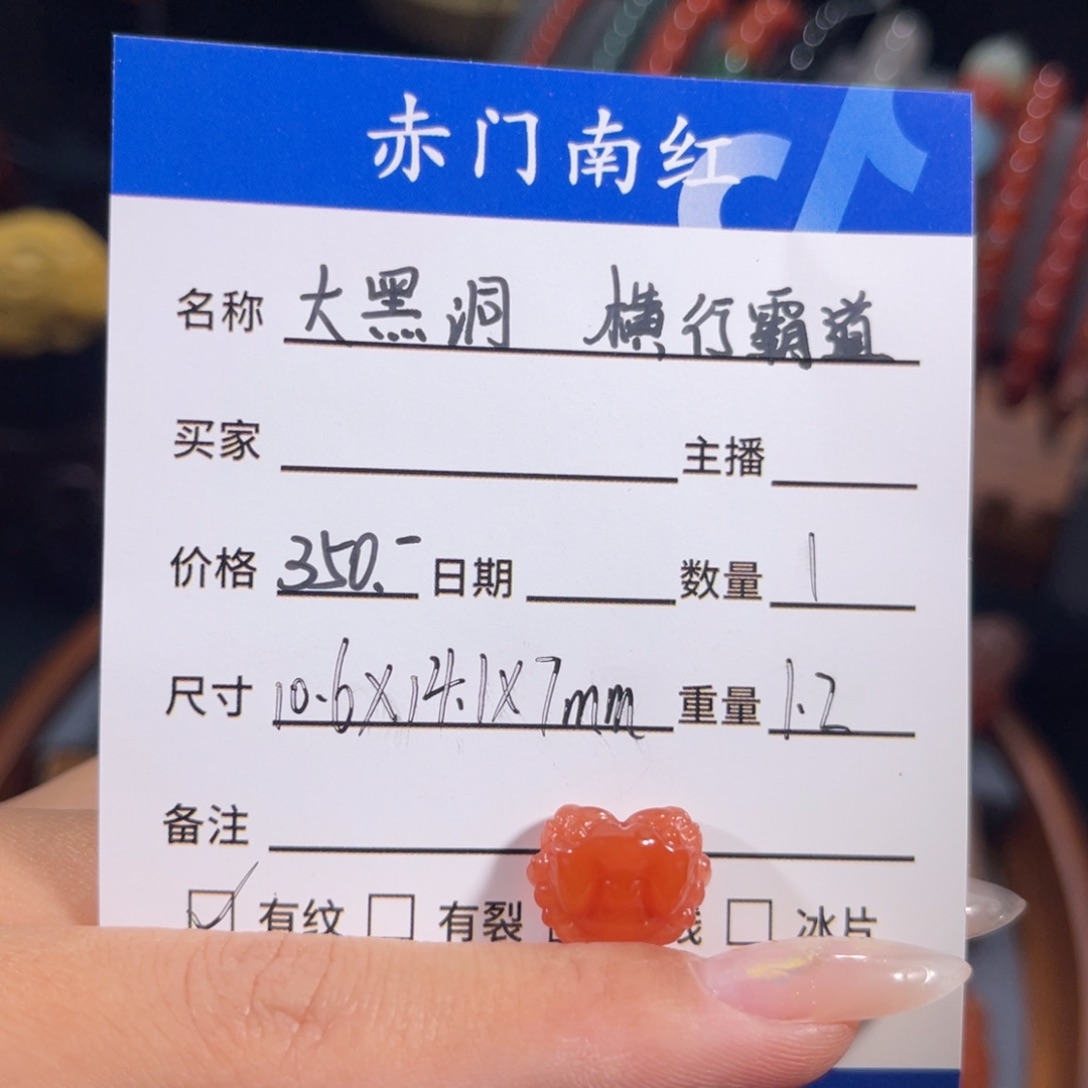 赤门南红
名称 大黑洞 横行霸道
买家 主播
价格 350.- 日期 数量 1
尺寸 10.6X14.1X7mm 重量 1.2
备注
有纹 有裂 冰片